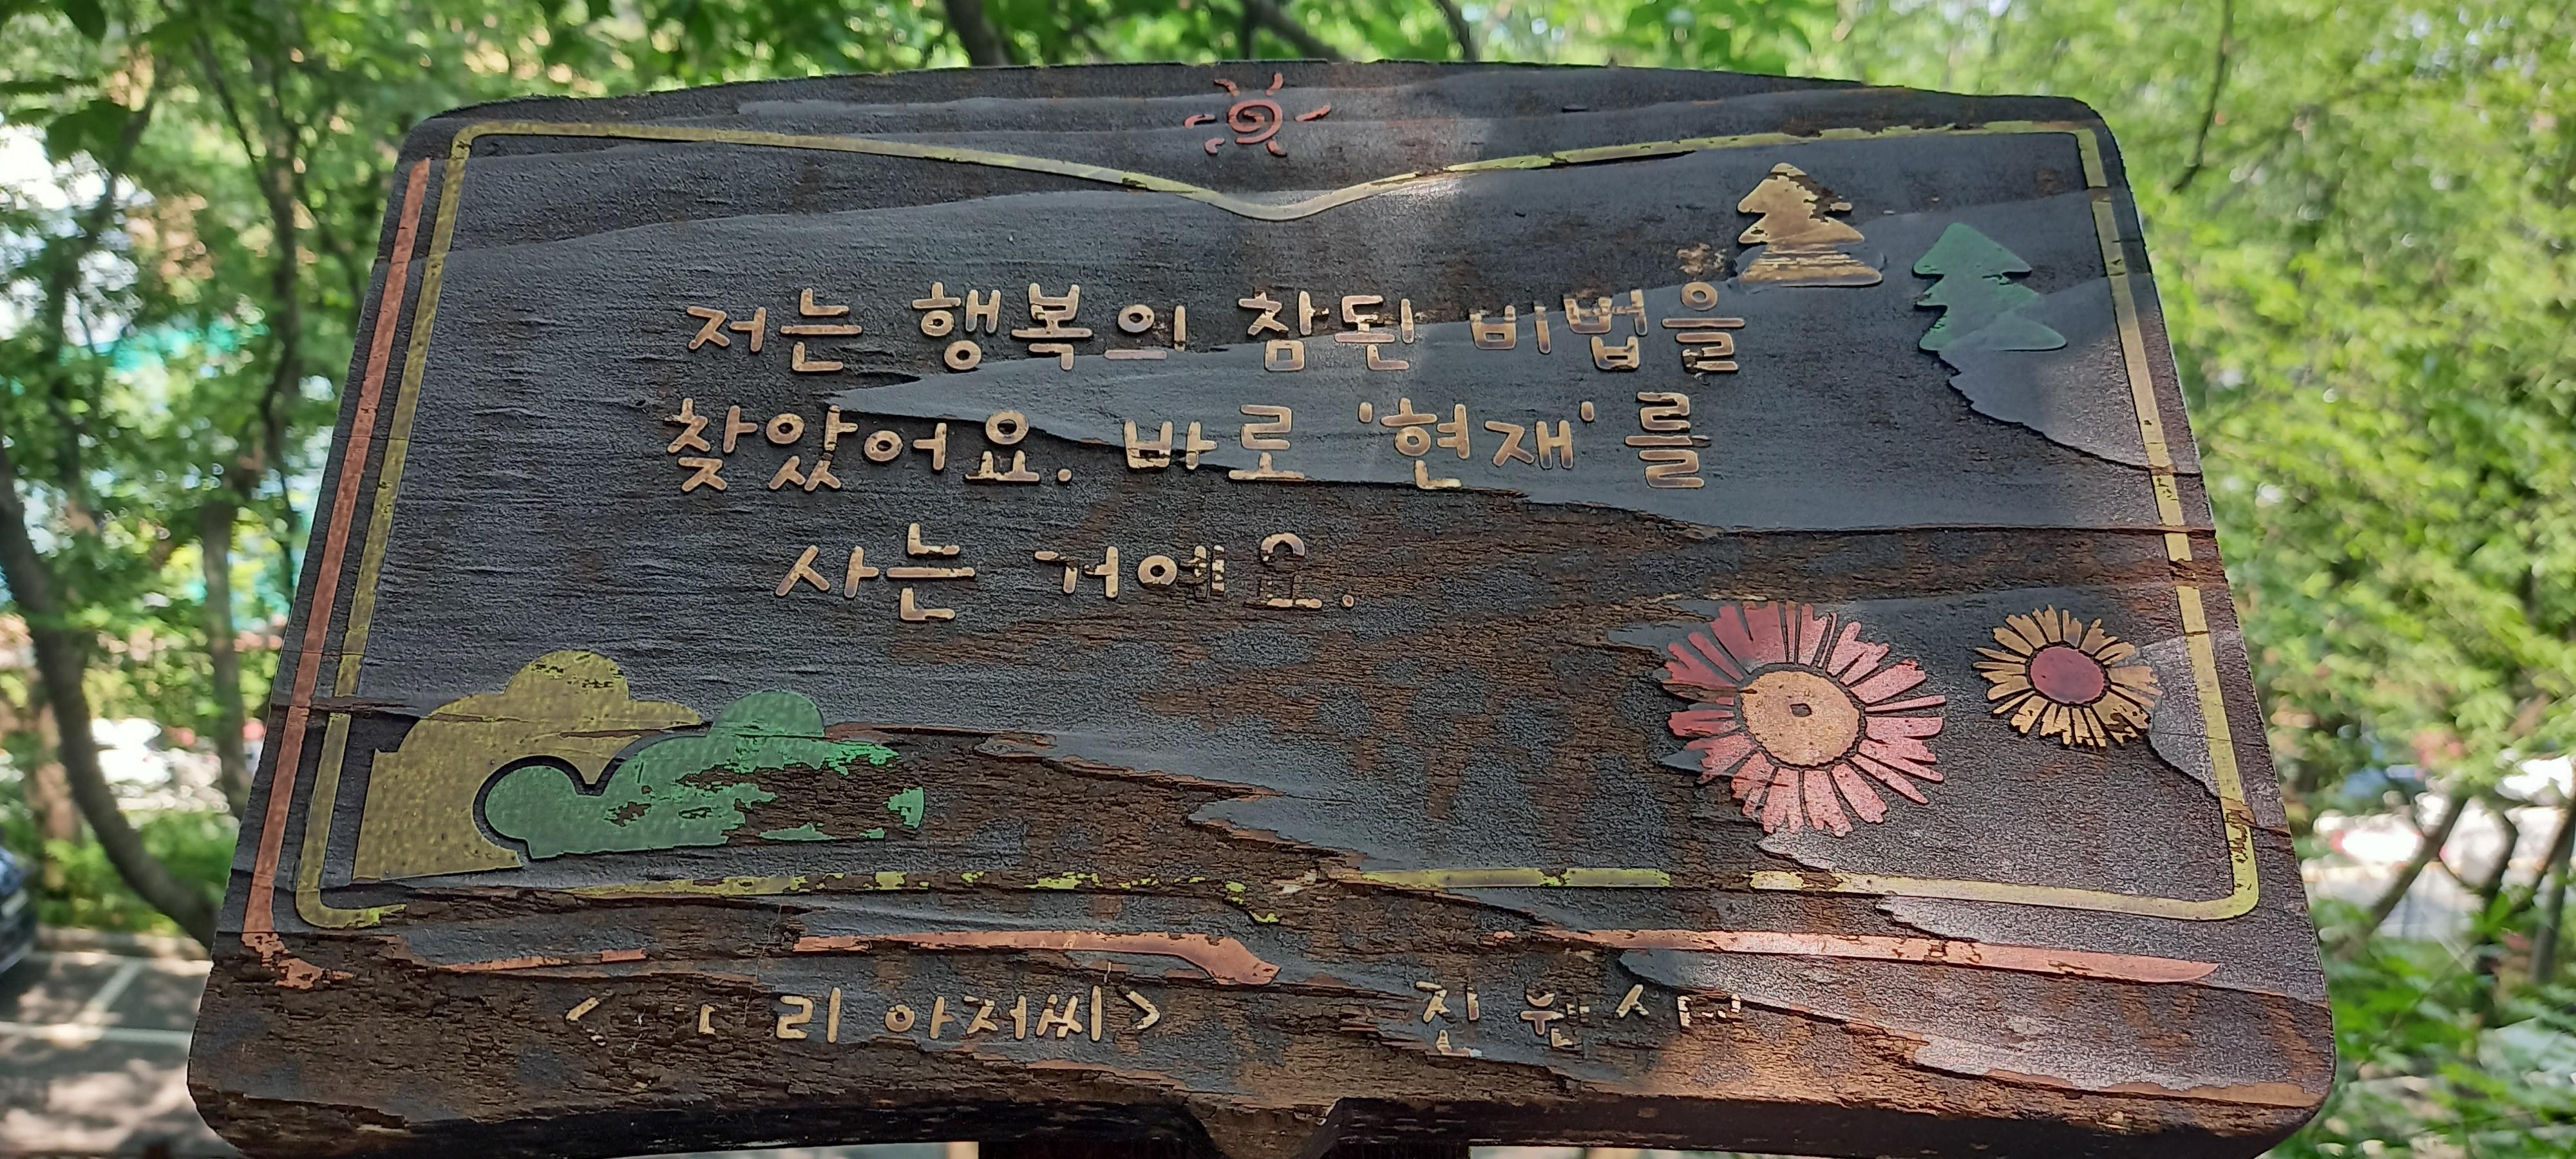 저는 행복의 참된 비법을
찾았어요. 바로 '현재'를
사는 거예요.
아저씨>